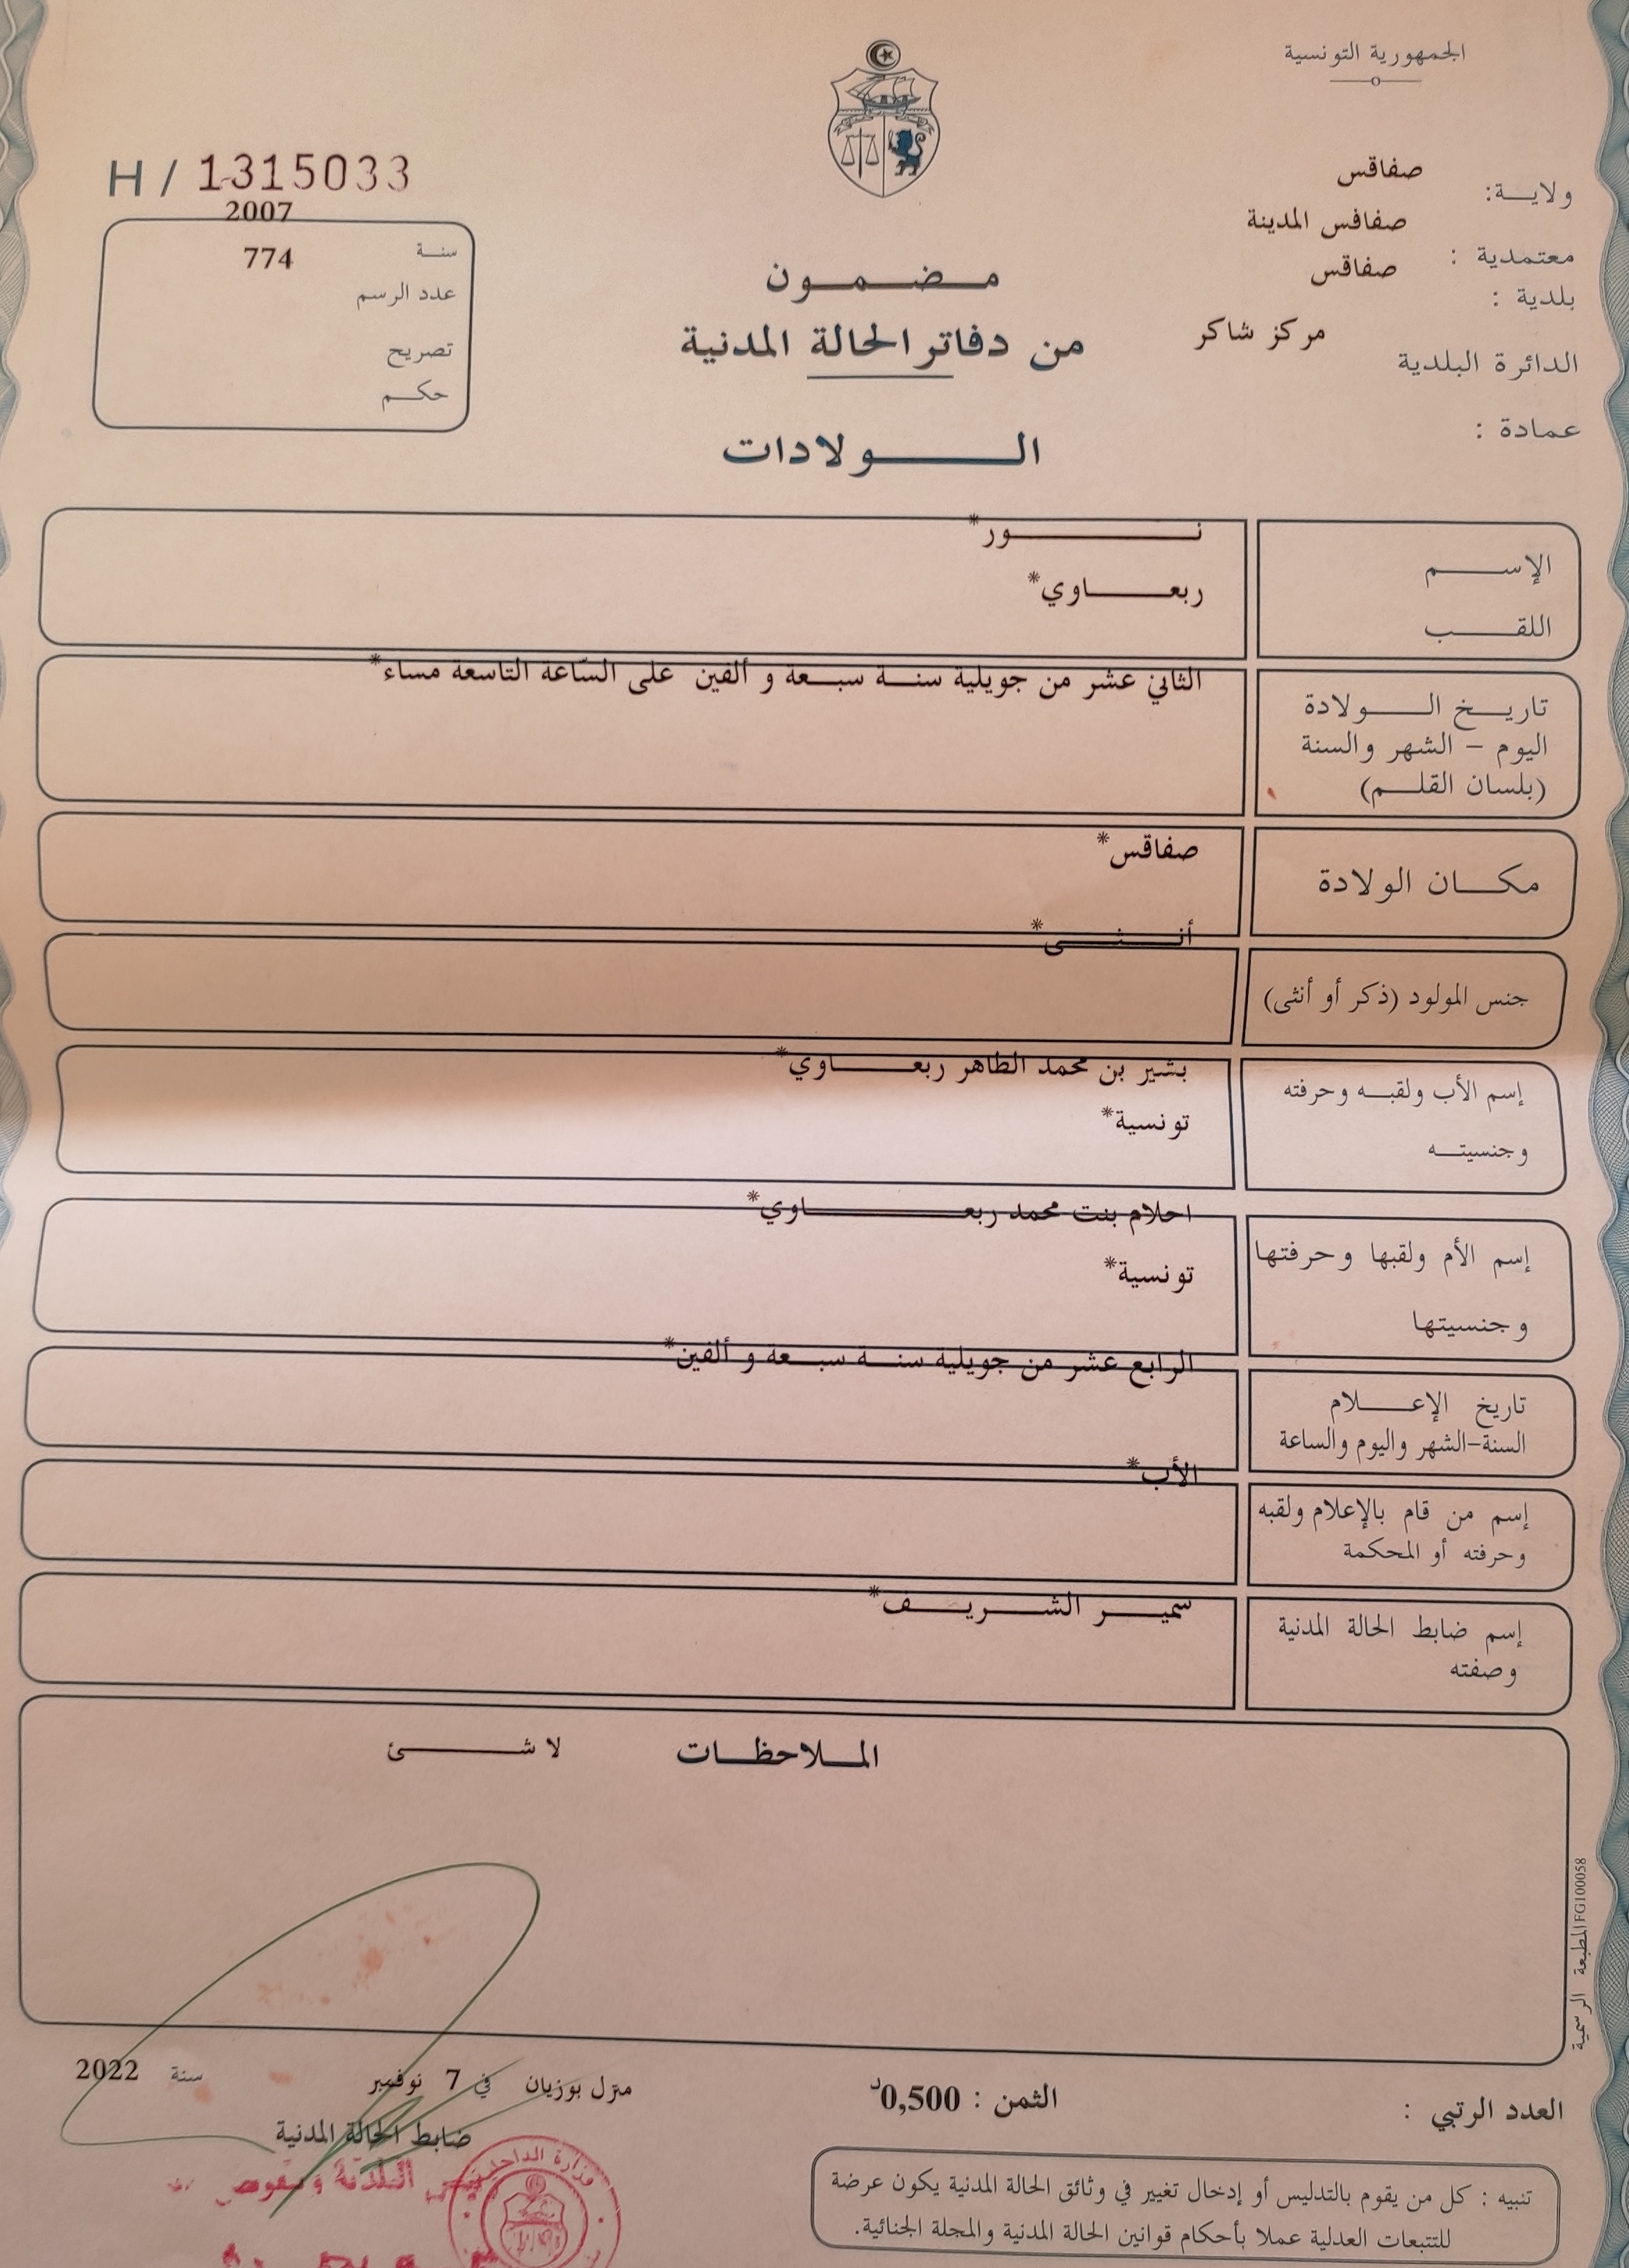 الجمهورية التونسية
ولاية: صفاقس
معتمدية : صفاقس المدينة
بلدية : صفاقس
الدائرة البلدية مركز شاكر
عمادة :
H / 1315033
سنة 2007
عدد الرسم 774
تصريح
حكم
مضمون
من دفاتر الحالة المدنية
الولادات
الإسم نور*
اللقب ربعاوي*
تاريخ الولادة
اليوم - الشهر والسنة
(بلسان القلم)
الثاني عشر من جويلية سنة سبعة و ألفين على السّاعة التاسعة مساء*
مكان الولادة صفاقس*
جنس المولود (ذكر أو أنثى) أنثى*
إسم الأب ولقبه وحرفته بشير بن محمد الظاهر ربعاوي*
وجنسيته تونسية*
إسم الأم ولقبها وحرفتها احلام بنت محمد ربعاوي*
وجنسيتها تونسية*
تاريخ الإعلام
السنة-الشهر واليوم والساعة
الرابع عشر من جويلية سنة سبعة و ألفين*
إسم من قام بالإعلام ولقبه
وحرفته أو المحكمة
الأب*
إسم ضابط الحالة المدنية
وصفته
سمير الشريف*
الملاحظات لا شئ
المطبعة الرسمية FG100058
العدد الرتبي :
الثمن : 0,500د
منزل بوزيان في 7 نوفمبر سنة 2022
ضابط الحالة المدنية
وزارة الداخلية
تنبيه : كل من يقوم بالتدليس أو إدخال تغيير في وثائق الحالة المدنية يكون عرضة
للتتبعات العدلية عملا بأحكام قوانين الحالة المدنية والمجلة الجنائية.